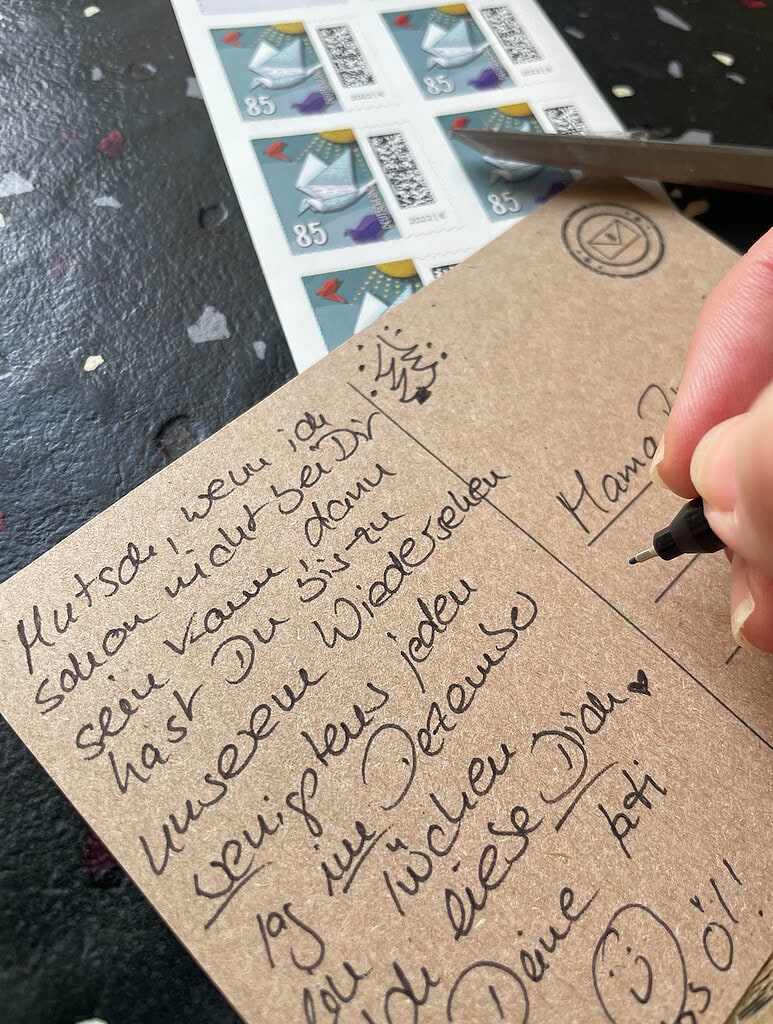 85
85
85
85
Mutsch, wenn ich
schon nicht bei Dir
sein kann dann
hast Du bis zu
unserem Wiedersehen
wenigstens jeden
Tag im Dezember
Tütchen
Ich liebe Dich
Deine
Öl!
Mama